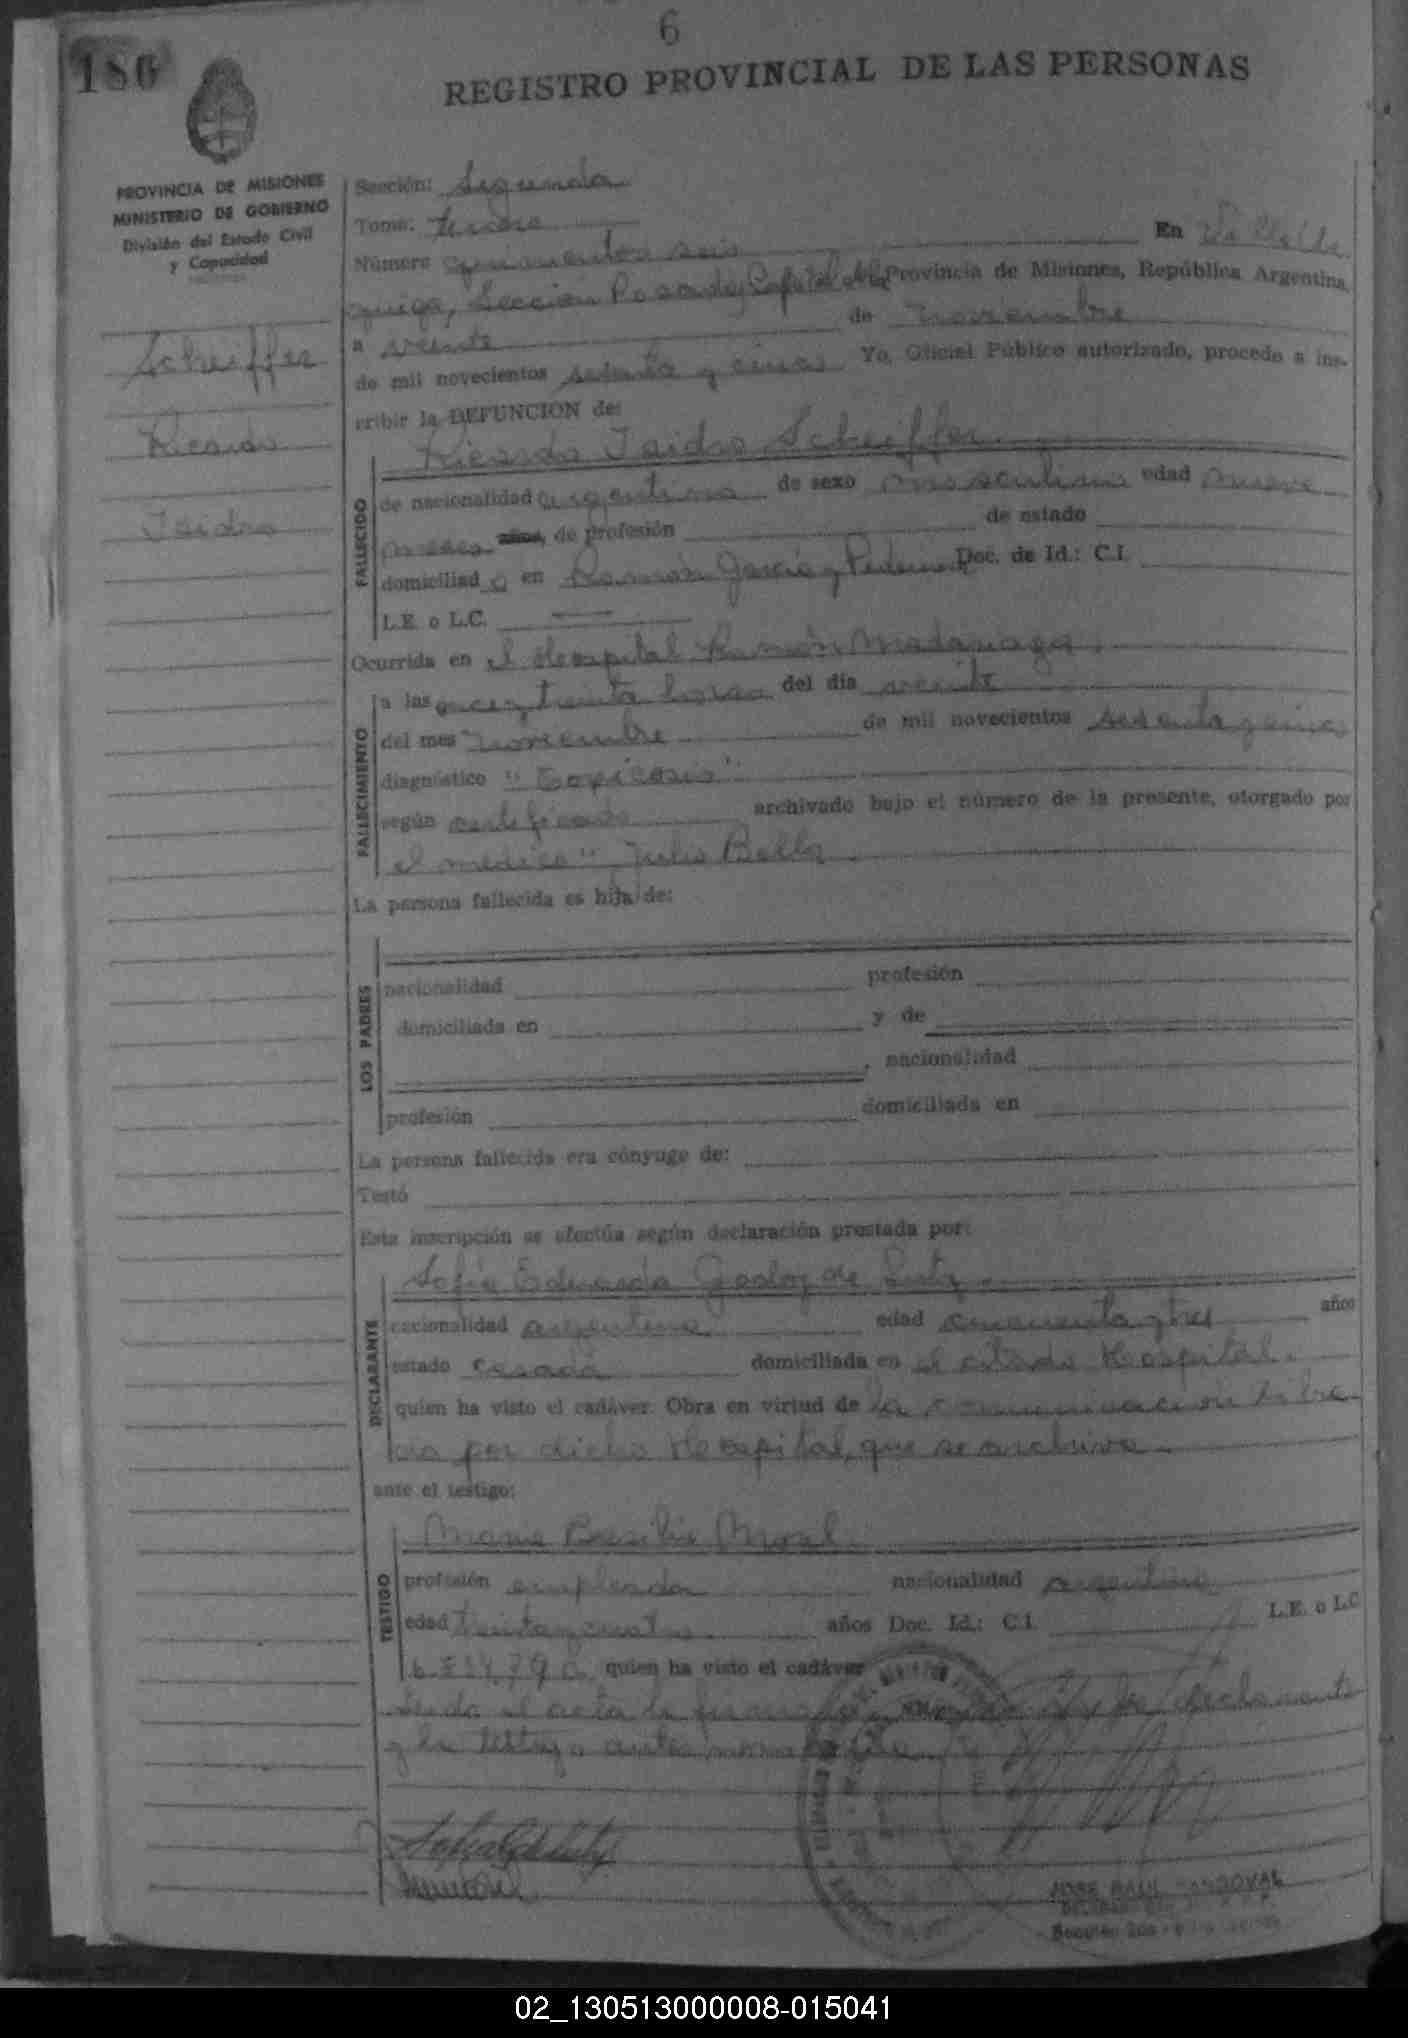 6
186
REGISTRO PROVINCIAL DE LAS PERSONAS
PROVINCIA DE MISIONES
MINISTERIO DE GOBIERNO
División del Estado Civil
y Capacidad
Scheiffer
Ricardo
Isidro
Sección: Segunda
Tomo: tercero
Número quinientos seis En Villa
Sección Posadas, Capital de la Provincia de Misiones, República Argentina,
a veinte de noviembre
de mil novecientos sesenta y cinco Yo, Oficial Público autorizado, procedo a ins-
cribir la DEFUNCION de:
Ricardo Isidro Scheiffer
FALLECIDO
de nacionalidad argentina de sexo masculino edad nueve
meses años, de profesión de estado
domiciliado en Ramón García y Doc. de Id.: C.I.
L.E. o L.C.
Ocurrida en el Hospital Ramón Madariaga
FALLECIMIENTO
a las treinta horas del día veinte
del mes noviembre de mil novecientos sesenta y cinco
diagnóstico "Toxicosis"
según certificado archivado bajo el número de la presente, otorgado por
el médico Julio Bella
La persona fallecida es hija de:
LOS PADRES
nacionalidad profesión
domiciliada en y de
, nacionalidad
profesión domiciliada en
La persona fallecida era cónyuge de:
Testó
Esta inscripción se efectúa según declaración prestada por:
DECLARANTE
Sofía Eduarda Godoy de
nacionalidad argentina edad cincuenta y tres años
estado casada domiciliada en el citado Hospital.
quien ha visto el cadáver. Obra en virtud de la comunicación libra-
da por dicho Hospital, que se archiva.
ante el testigo:
TESTIGO
María Basilia
profesión empleada nacionalidad argentina
edad treinta y cuatro años Doc. Id.: C.I. L.E. o L.C
quien ha visto el cadáver
Leida el acta la firman declarante
y la testigo antes nombrada
JOSE RAUL SANDOVAL
02_130513000008-015041